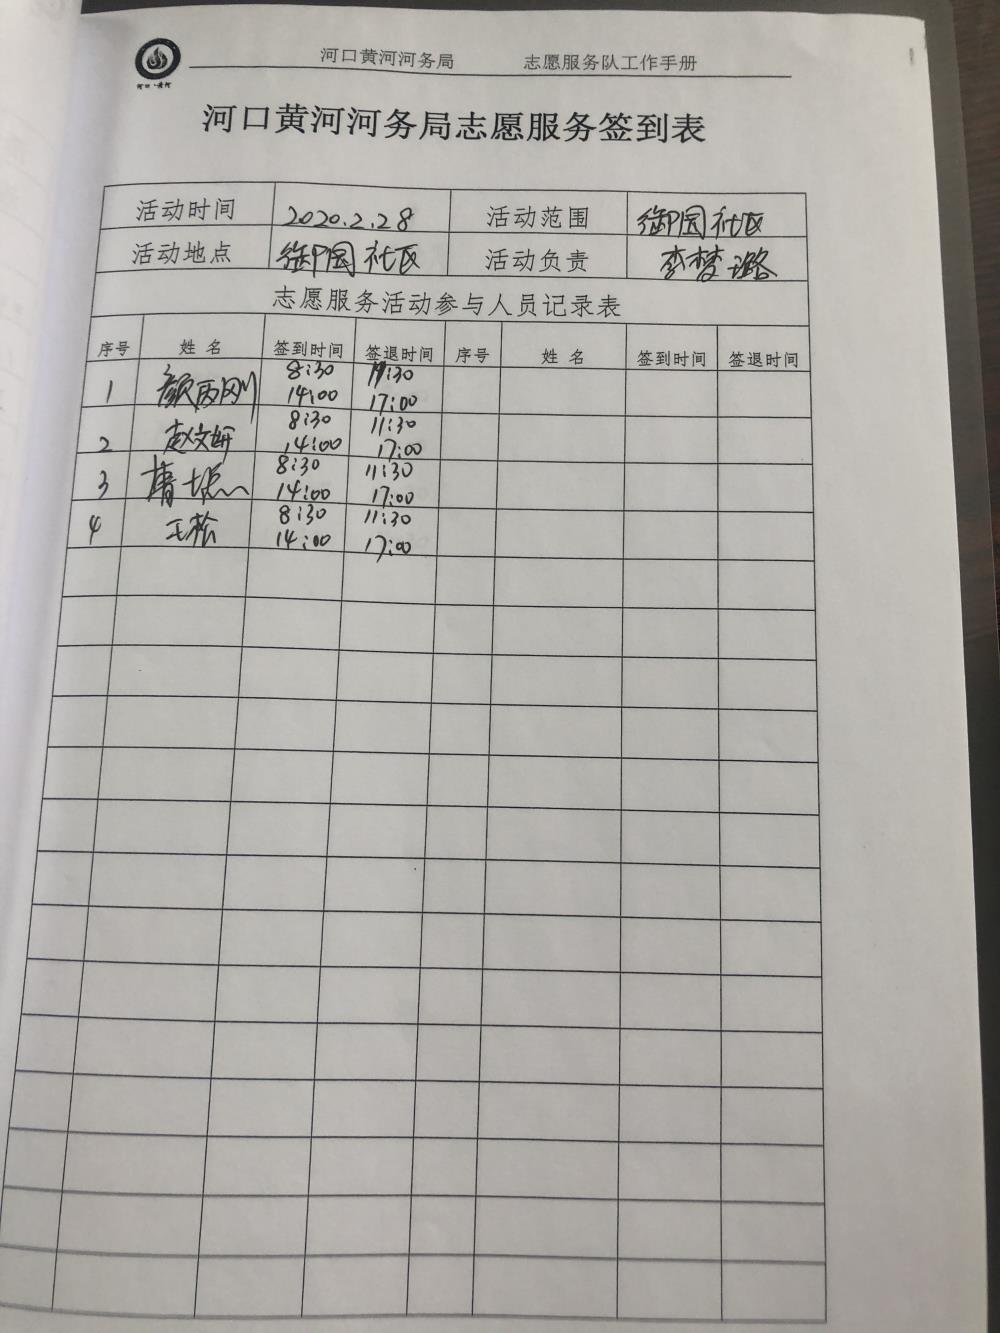 河口黄河河务局 志愿服务队工作手册
河口·黄河
河口黄河河务局志愿服务签到表
活动时间 2020.2.28 活动范围 御园社区
活动地点 御园社区 活动负责 李梦璐
志愿服务活动参与人员记录表
序号 姓名 签到时间 签退时间 序号 姓名 签到时间 签退时间
8:30 11:30
1 颜丙刚 14:00 17:00
8:30 11:30
2 赵文妍 14:00 17:00
8:30 11:30
3 14:00 17:00
8:30 11:30
4 王松 14:00 17:00